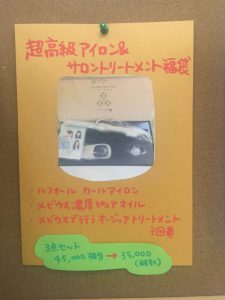 超高級アイロン&
サロントリートメント福袋
・ルフオール カールアイロン
・メビウス濃厚ピュアオイル
・メビウスで行うオージュアトリートメント
3回券
3点セット
45,000相当→35,000
(税別)